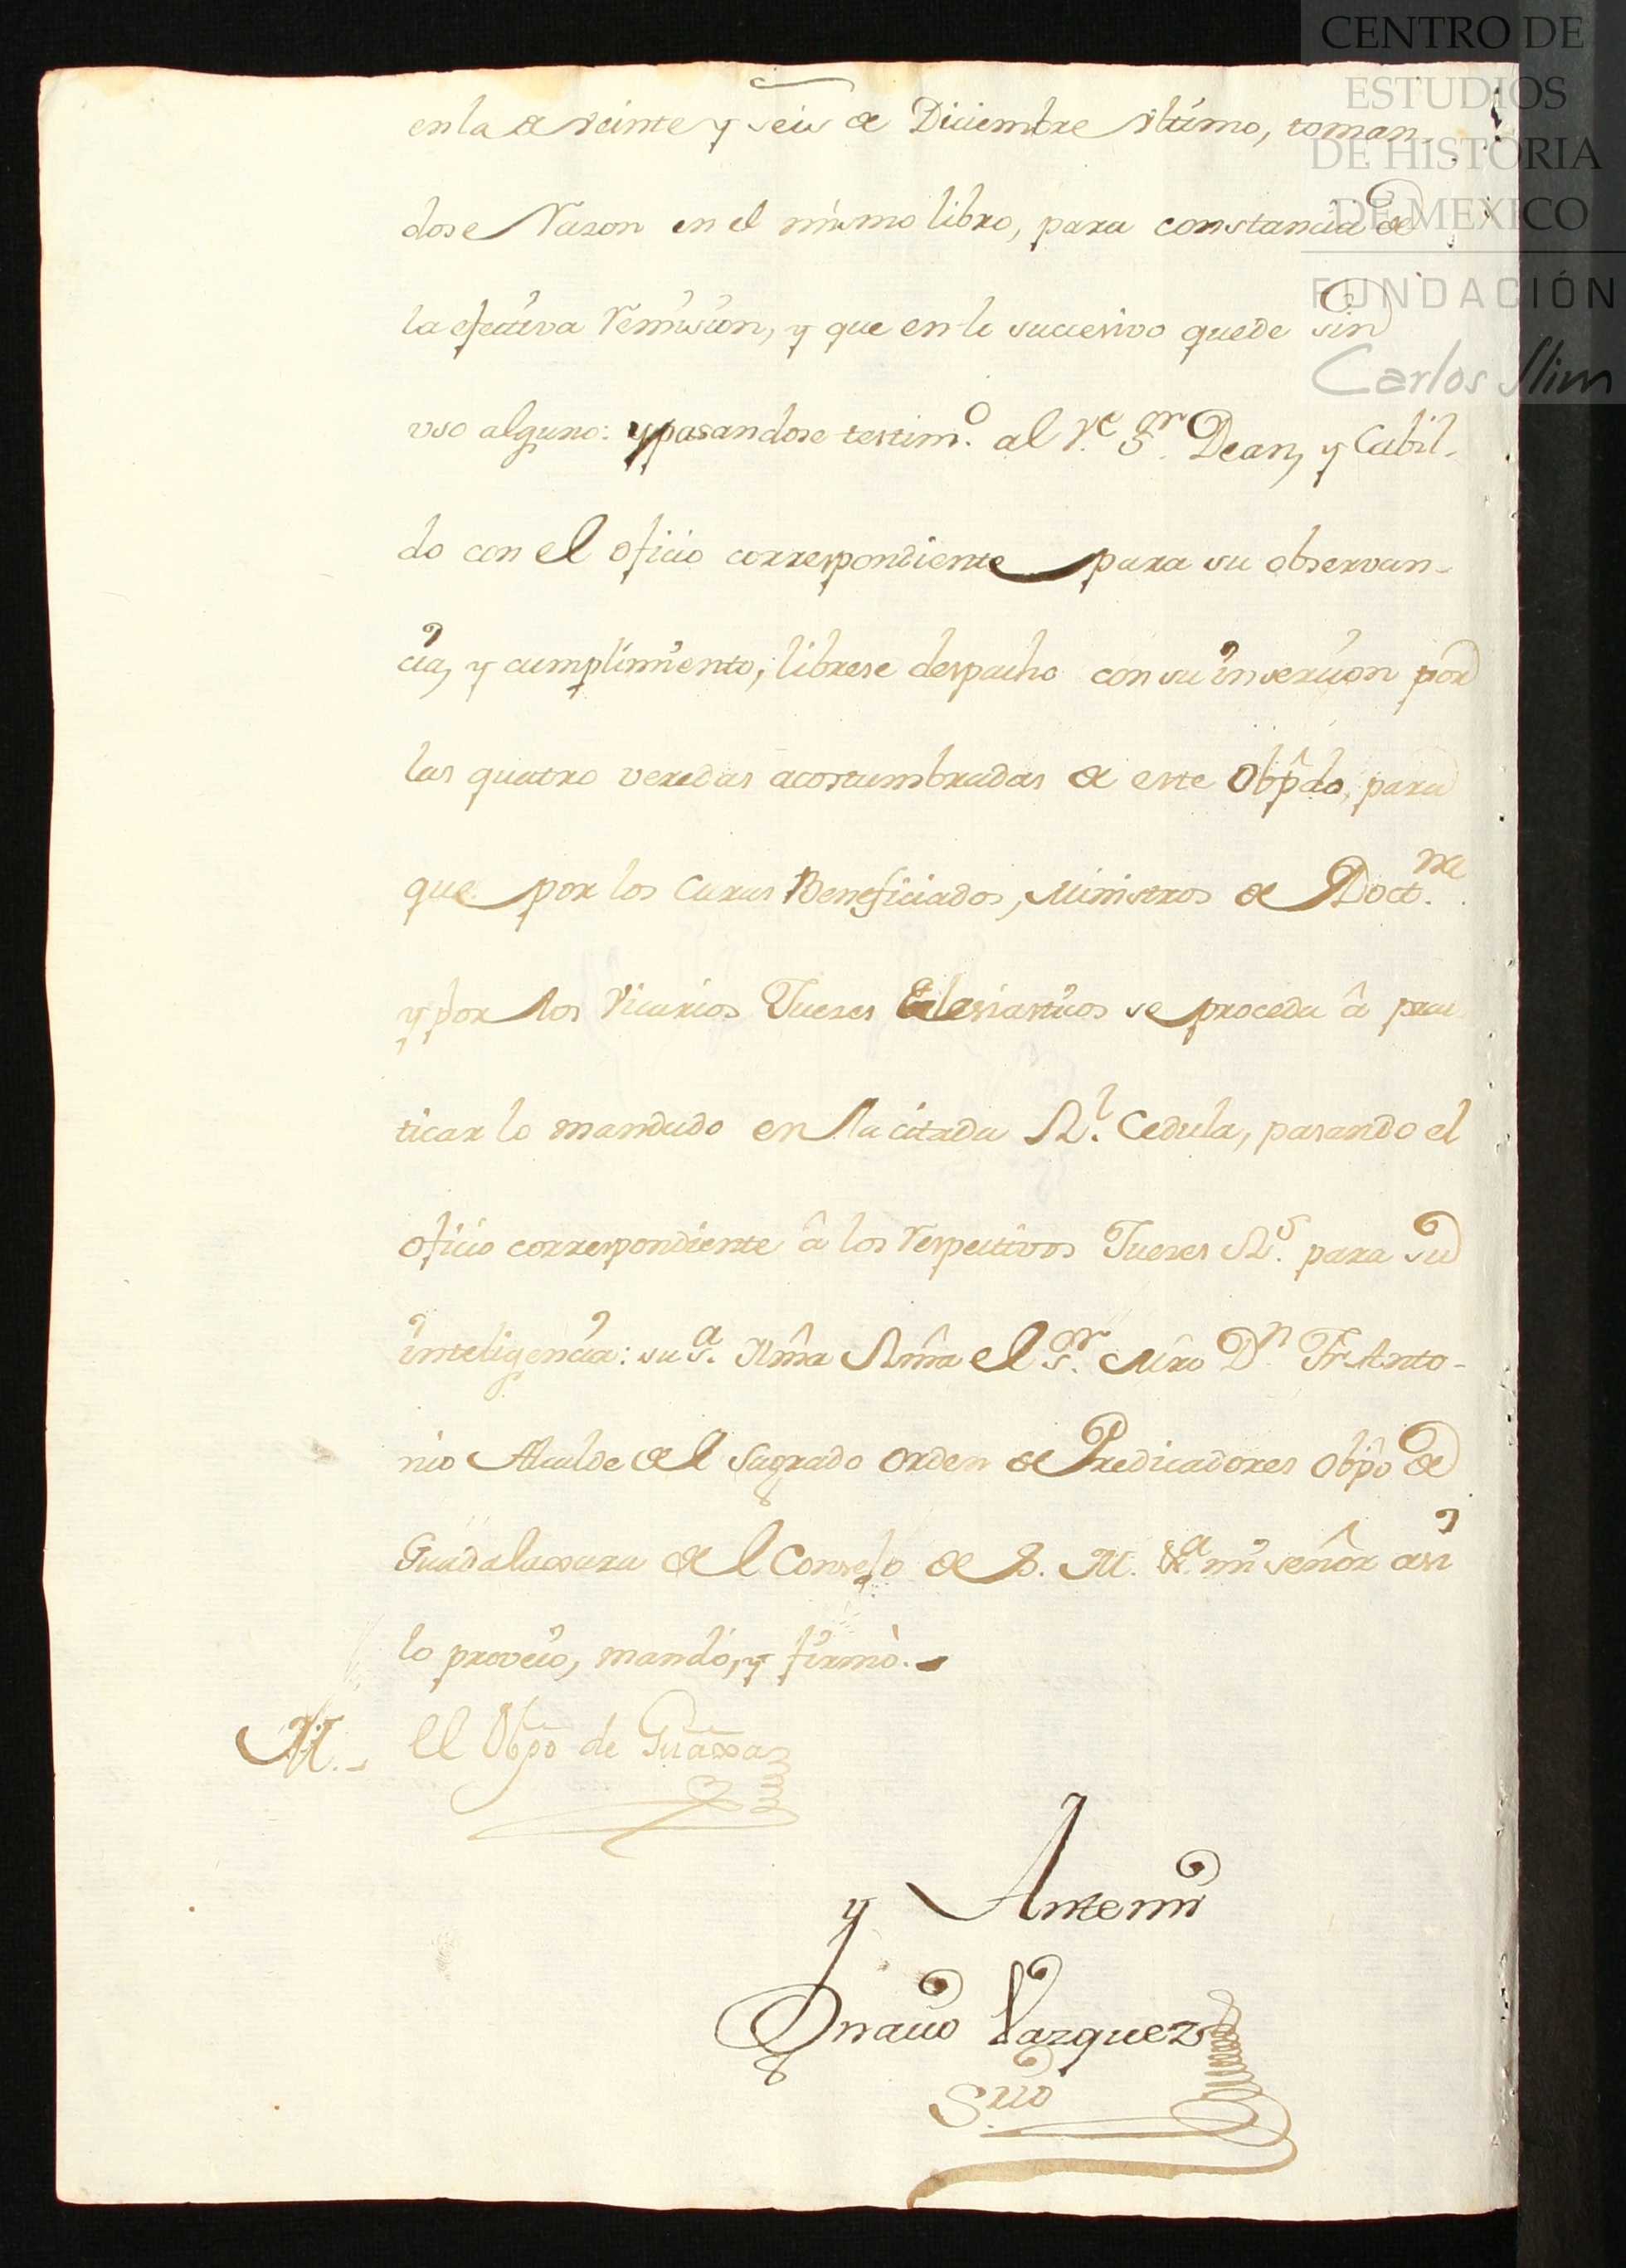 CENTRO DE
ESTUDIOS
DE HISTORIA
DE MEXICO
FUNDACIÓN
Carlos Slim
en la de veinte y seis de Diciembre ultimo, toman-
dose razon en el mismo libro, para constancia de
la efectiva remision, y que en lo succesivo quede sin
uso alguno: y pasandose testim.º al Ve. Sr. Dean, y Cabil-
do con el oficio correspondiente para su observan-
cia, y cumplimiento, librese despacho con su insercion por
las quatro veredas acostumbradas de este Obpdo, para
que por los Curas Beneficiados, Ministros de Doct.na
y por los Vicarios Jueces Eclesiasticos se proceda â prac-
ticar lo mandado en la citada Rl. Cedula, pasando el
oficio correspondiente â los respectivos Jueces Rs. para su
inteligencia: su Sa. Illma Rma el Sr. Mro Dn Fr Anto-
nio Alcalde de el Sagrado orden de Predicadores obpo de
Guadalaxara de el Consejo de S. M. &a mi señor asi
lo proveió, mandó, y firmò.
M. El Obpo de Guadaxa
y Antemi
Ignacio Vazquez
Srio